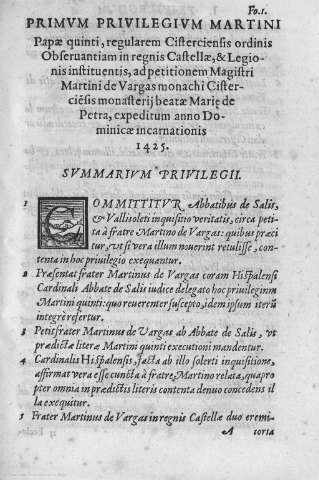 Fo.1.
PRIMVM PRIVILEGIVM MARTINI
Papæ quinti, regularem Cisterciensis ordinis
Obseruantiam in regnis Castellæ, & Legio-
nis instituentis, ad petitionem Magistri
Martini de Vargas monachi Cister-
ciēsis monasterij beatæ Marię de
Petra, expeditum anno Do-
minicæ incarnationis
1425.
SVMMARIVM PRIVILEGII.
1 COMMITTITVR Abbatibus de Salis,
& Vallisoleti inquisitio veritatis, circa peti-
ta à fratre Martino de Vargas: quibus præci
tur, vt si vera illum nouerint retulisse, con-
tenta in hoc priuilegio exequantur.
2 Præsentat frater Martinus de Vargas coram Hispalensi
Cardinali Abbate de Salis iudice delegato hoc priuilegium
Martini quinti: quo reuerenter suscepto, idem ipsum iterū
integrè refertur.
3 Petit frater Martinus de Vargas ab Abbate de Salis, vt
prædictæ literæ Martini quinti executioni mandentur.
4 Cardinalis Hispalensis, facta ab illo solerti inquisitione,
affirmat vera esse cuncta à fratre Martino relata, quapro
pter omnia in prædictis literis contenta denuo concedens il
la exequitur.
5 Frater Martinus de Vargas in regnis Castellæ duo eremi-
A toria